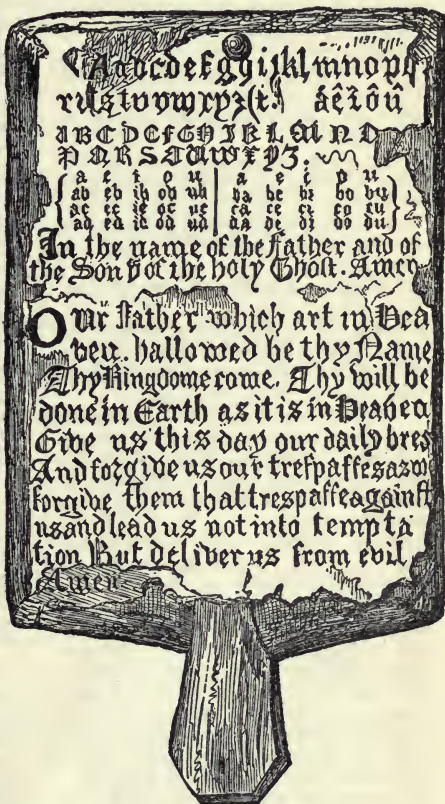 Aabcdefghijklmnopq
rſstuvwxyz&. áêîôû
ABCDEFGHIJKLMNO
PQRSTUWXYZ.
a e i o u | a e i o u
ab eb ib ob ub | ba be bi bo bu
ac ec ic oc uc | ca ce ci co cu
ad ed id od ud | da de di do du
In the name of the Father and of
the Son & of the holy Ghost. Amen
Our Father which art in Hea
ven. hallowed be thy Name
Thy Kingdome come. Thy will be
done in Earth as it is in Heaven
Give us this day our daily bred
And forgive us our treſpaſſes as we
forgive them that treſpaſſe againſt
us and lead us not into tempta
tion But deliver us from evil
Amen